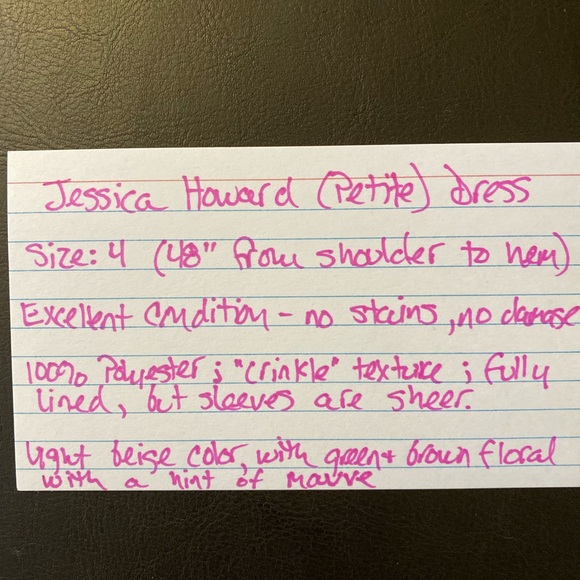 Jessica Howard (Petite) Dress
Size: 4 (48" from shoulder to hem)
Excellent condition - no stains, no damage
100% Polyester; "crinkle" texture; fully
lined, but sleeves are sheer.
Light beige color, with green + brown floral
with a hint of mauve